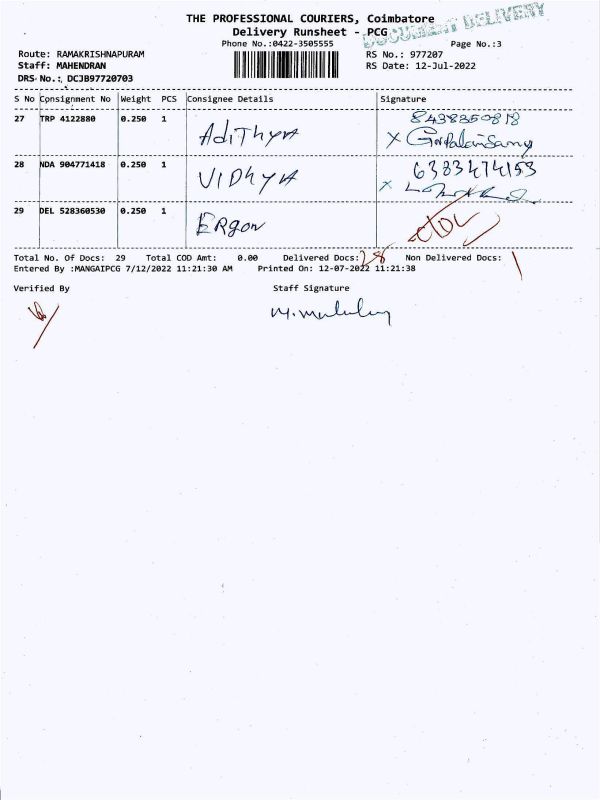 THE PROFESSIONAL COURIERS, Coimbatore
DOCUMENT DELIVERY
Delivery Runsheet - PCG
Phone No.:0422-3505555
Page No.:3
Route: RAMAKRISHNAPURAM
RS No.: 977207
Staff: MAHENDRAN
RS Date: 12-Jul-2022
DRS No.: DCJB97720703
S No Consignment No Weight PCS Consignee Details Signature
27 TRP 4122880 0.250 1 AdiThyA 8438350818
X Gopalansamy
28 NDA 904771418 0.250 1 VIDhyA 6383474153
X
29 DEL 528360530 0.250 1 ERgon C/DL
Total No. Of Docs: 29 Total COD Amt: 0.00 Delivered Docs: 28 Non Delivered Docs: 1
Entered By :MANGAIPCG 7/12/2022 11:21:30 AM Printed On: 12-07-2022 11:21:38
Verified By Staff Signature